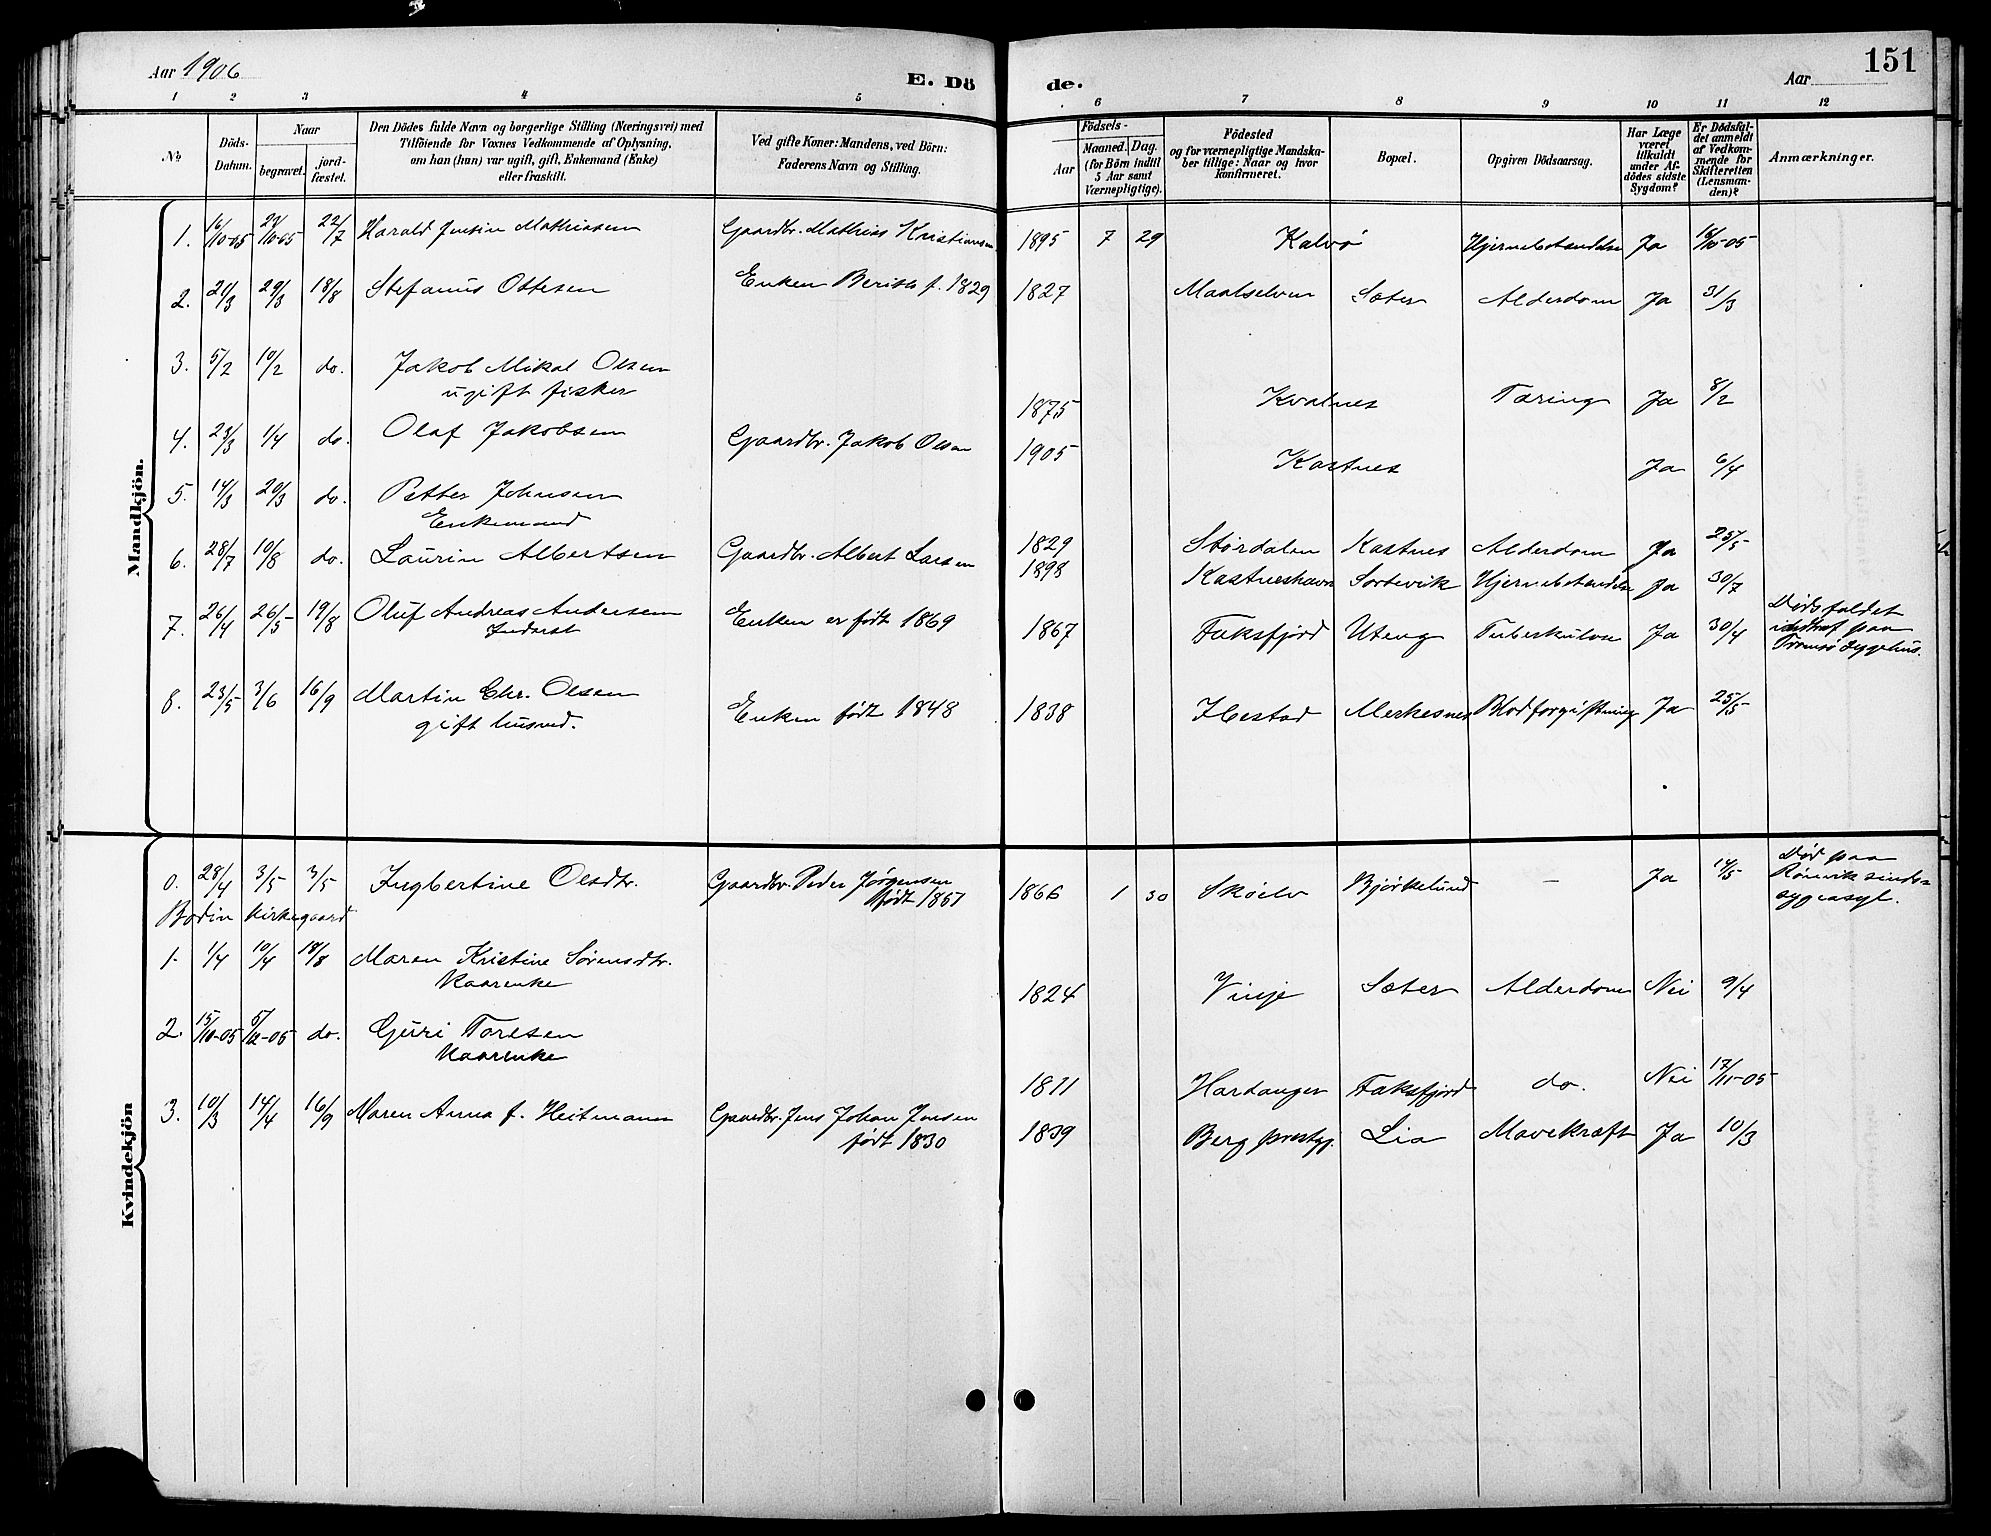 Aar 1906
E. Dö de.
Aar
151
1 2 3 4 5 6 7 8 9 10 11 12
No
Döds-Datum.
Naar
begravet.
jord-fæstet.
Den Dödes fulde Navn og borgerlige Stilling (Næringsvei) med
Tilföiende for Voxnes Vedkommende af Oplysning,
om han (hun) var ugift, gift, Enkemand (Enke)
eller fraskilt.
Ved gifte Koner: Mandens, ved Börn:
Faderens Navn og Stilling.
Födsels-
Aar
Maaned. Dag.
(for Börn indtil
5 Aar samt
Værnepligtige).
Födested
og for værnepligtige Mandska-
ber tillige: Naar og hvor
konfirmeret.
Bopæl.
Opgiven Dödsaarsag.
Har Læge
været
tilkaldt
under Af-
dödes sidste
Sygdom?
Er Dödsfal-
det anmeldt
af Vedkom-
mende for
Skifteretten
(Lensman-
den)?
Anmærkninger.
Mandkjön.
1. 16/10-05 24/10-05 22/7 Harald Jensin Mathiasen Gaardbr. Mathias Kristiansen 1895 7 29 Kalvø Hjernebetændelse Ja 18/10-05
2. 21/3 29/3 18/8 Stefanus Ottesen Enken Berith f. 1829 1827 Maalselven Sæter Alderdom Ja 31/3
3. 5/2 10/2 do. Jakob Mikal Olsen
ugift fisker 1875 Kvalnes Tæring Ja 8/2
4. 23/3 1/4 do. Olaf Jakobsen Gaardbr. Jakob Olsen 1905 Kastnes Ja 6/4
5. 14/3 20/3 do. Petter Johnsen
Enkemand 1829 Størdalen Kastnes Alderdom Ja 25/5
6. 28/7 10/8 do. Laurin Albertsen Gaardbr. Albert Larsen 1898 Kastneshavn Sortevik Hjernebetændelse Ja 30/7
7. 26/4 26/5 19/8 Oluf Andreas Andersen
Inderst Enken er født 1869 1867 Faksfjord Uteng Tuberkulose Ja 30/4 Dødsfaldet
indtraf paa
Tromsø sygehus.
8. 23/5 3/6 16/9 Martin Chr. Olsen
gift husmd. Enken født 1848 1838 Ibestad Merkesnes Blodforgiftning Ja 25/5
Kvindekjön
0. 28/4 3/5 3/5 Ingbertine Olsdtr. Gaardbr. Peder Jørgensen
født 1861 1866 1 30 Skøelv Bjørkelund — Ja 14/5 Død paa
Rønvik sinds-
sygeasyl.
Bodin kirkegaard
1. 1/4 10/4 18/8 Maren Kristine Sørensdtr.
Kaarenke 1824 Vinje Sæter Alderdom Nei 9/4
2. 15/10-05 5/12-05 do. Guri Toresen
Kaarenke 1811 Hardanger Faksfjord do. Nei 17/11-05
3. 10/3 14/4 16/9 Maren Anna f. Heitmann Gaardbr. Jens Johan Jensen
født 1830 1839 Berg prestgj. Lia Mavekræft Ja 10/3